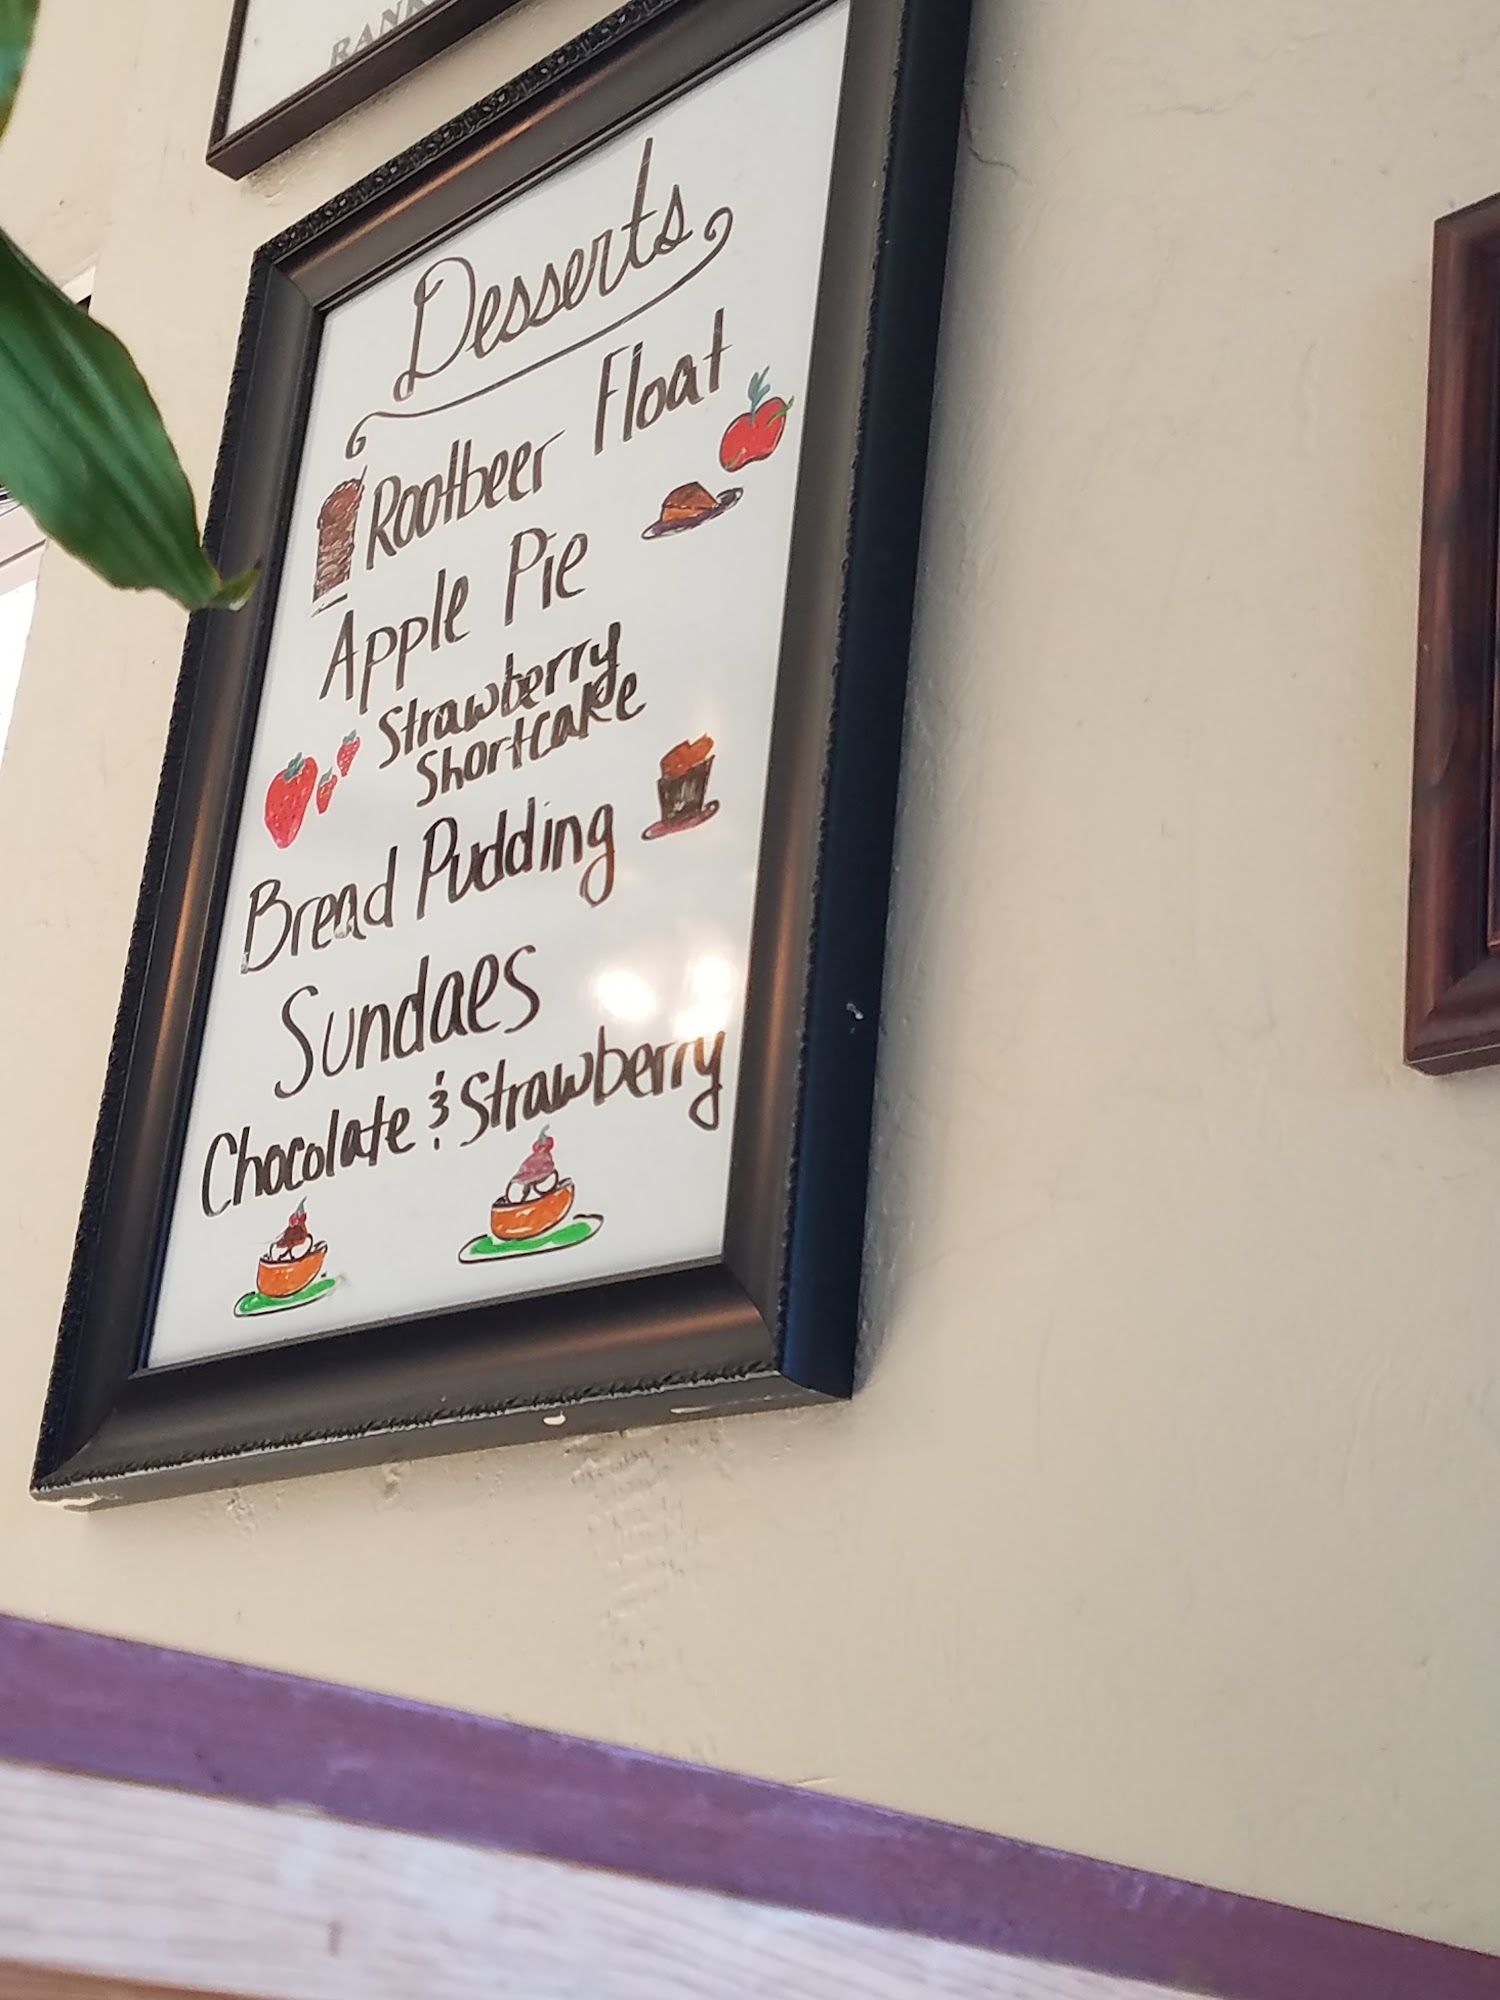 RANK
Desserts
Rootbeer Float
Apple Pie
Strawberry
Shortcake
Bread Pudding
Sundaes
Chocolate & Strawberry